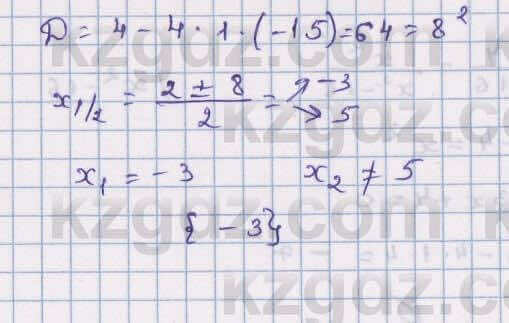 Д = 4 - 4 · 1 · (-15) = 64 = 8²
x₁/₂ = (2 ± 8)/2 = ↗ -3 ↘ 5
x₁ = -3 x₂ ≠ 5
{ -3}
kzgdz.com
kzgdz.com
kzgdz.com
kzgdz.com